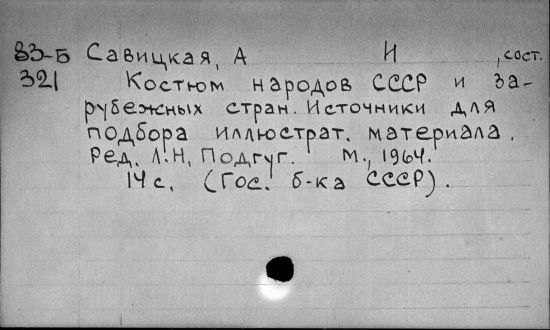 83-Б Савицкая, А И , сост.
321 Костюм народов СССР и за-
рубежных стран. Источники для
подбора иллюстрат. материала.
Ред. Л.Н. Подгуг. М., 1964.
14 с. (Гос. б-ка СССР).